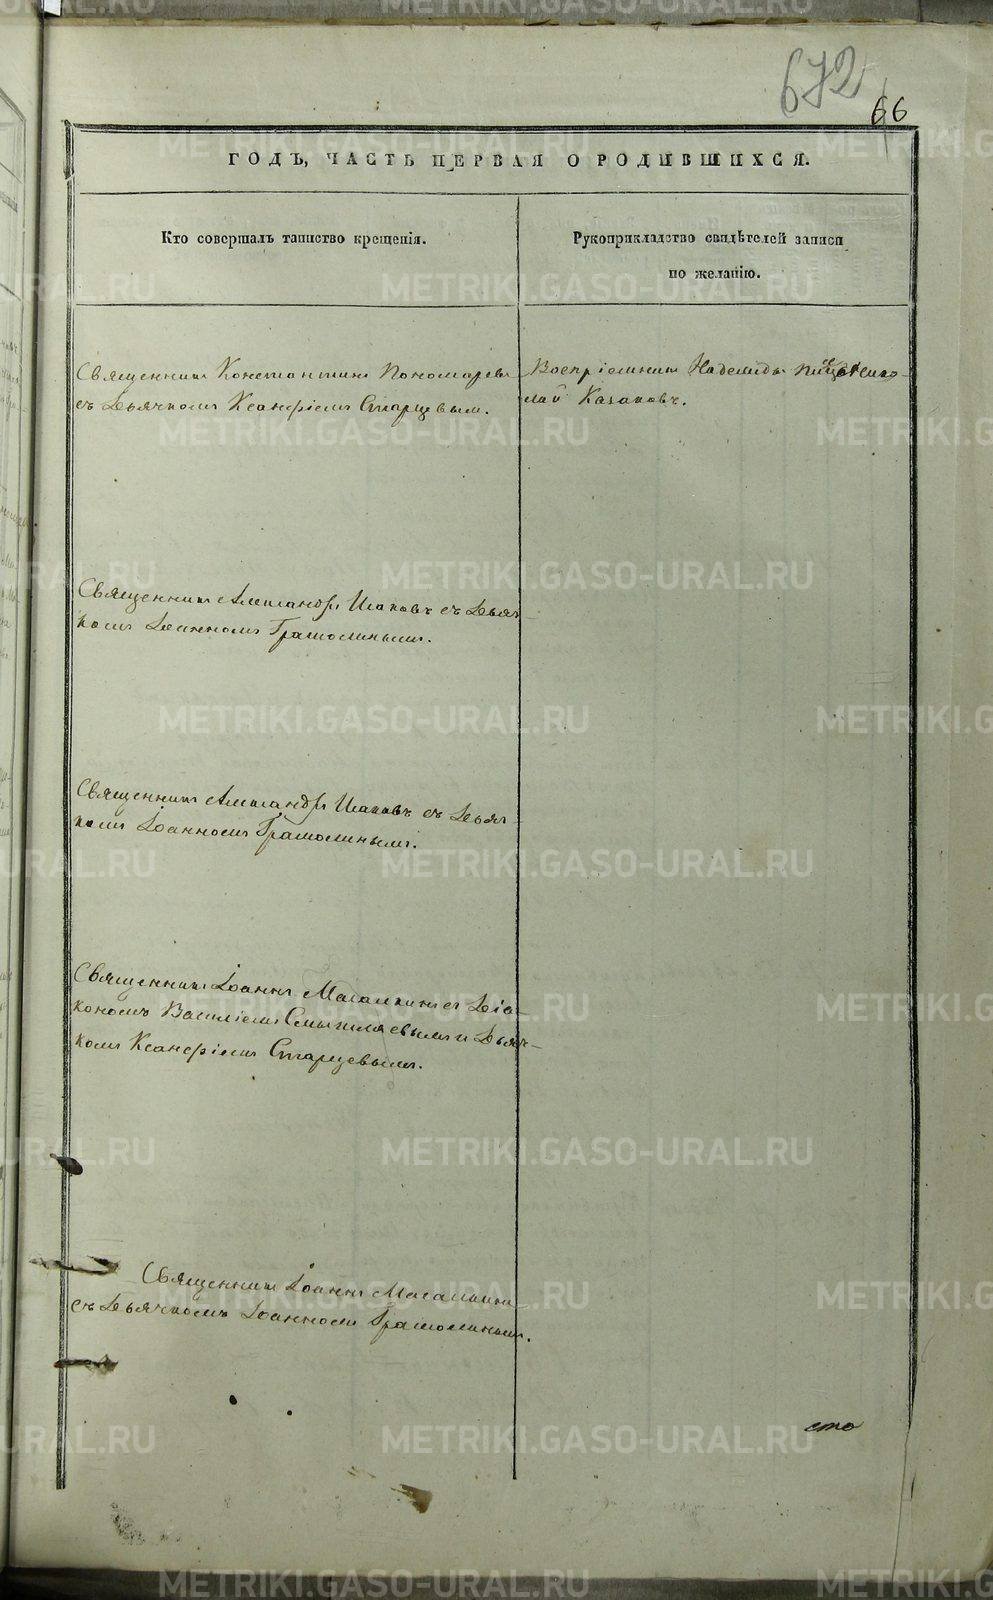 672
66
ГОДЪ, ЧАСТЬ ПЕРВАЯ О РОДИВШИХСЯ.
Кто совершалъ таинство крещенія.
Рукоприкладство свидѣтелей записи
по желанію.
Священникъ Константинъ Пономаревъ
съ Дьячкомъ Ксанфіемъ Старцевымъ.
Воспріемникъ Нико-
лай Казаковъ.
Священникъ Александръ съ Дьяч-
комъ Іоанномъ
Священникъ Александръ съ Дьяч-
комъ Іоанномъ
Священникъ Іоаннъ с Діа-
кономъ Василіемъ Смышляевымъ и Дьяч-
комъ Ксанфіемъ Старцевымъ.
Священникъ Іоаннъ
съ Дьячкомъ Іоанномъ
сто
METRIKI.GASO-URAL.RU